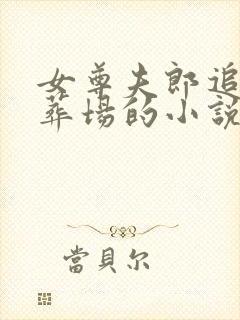 女尊夫郎追
葬場的小說
當貝尔